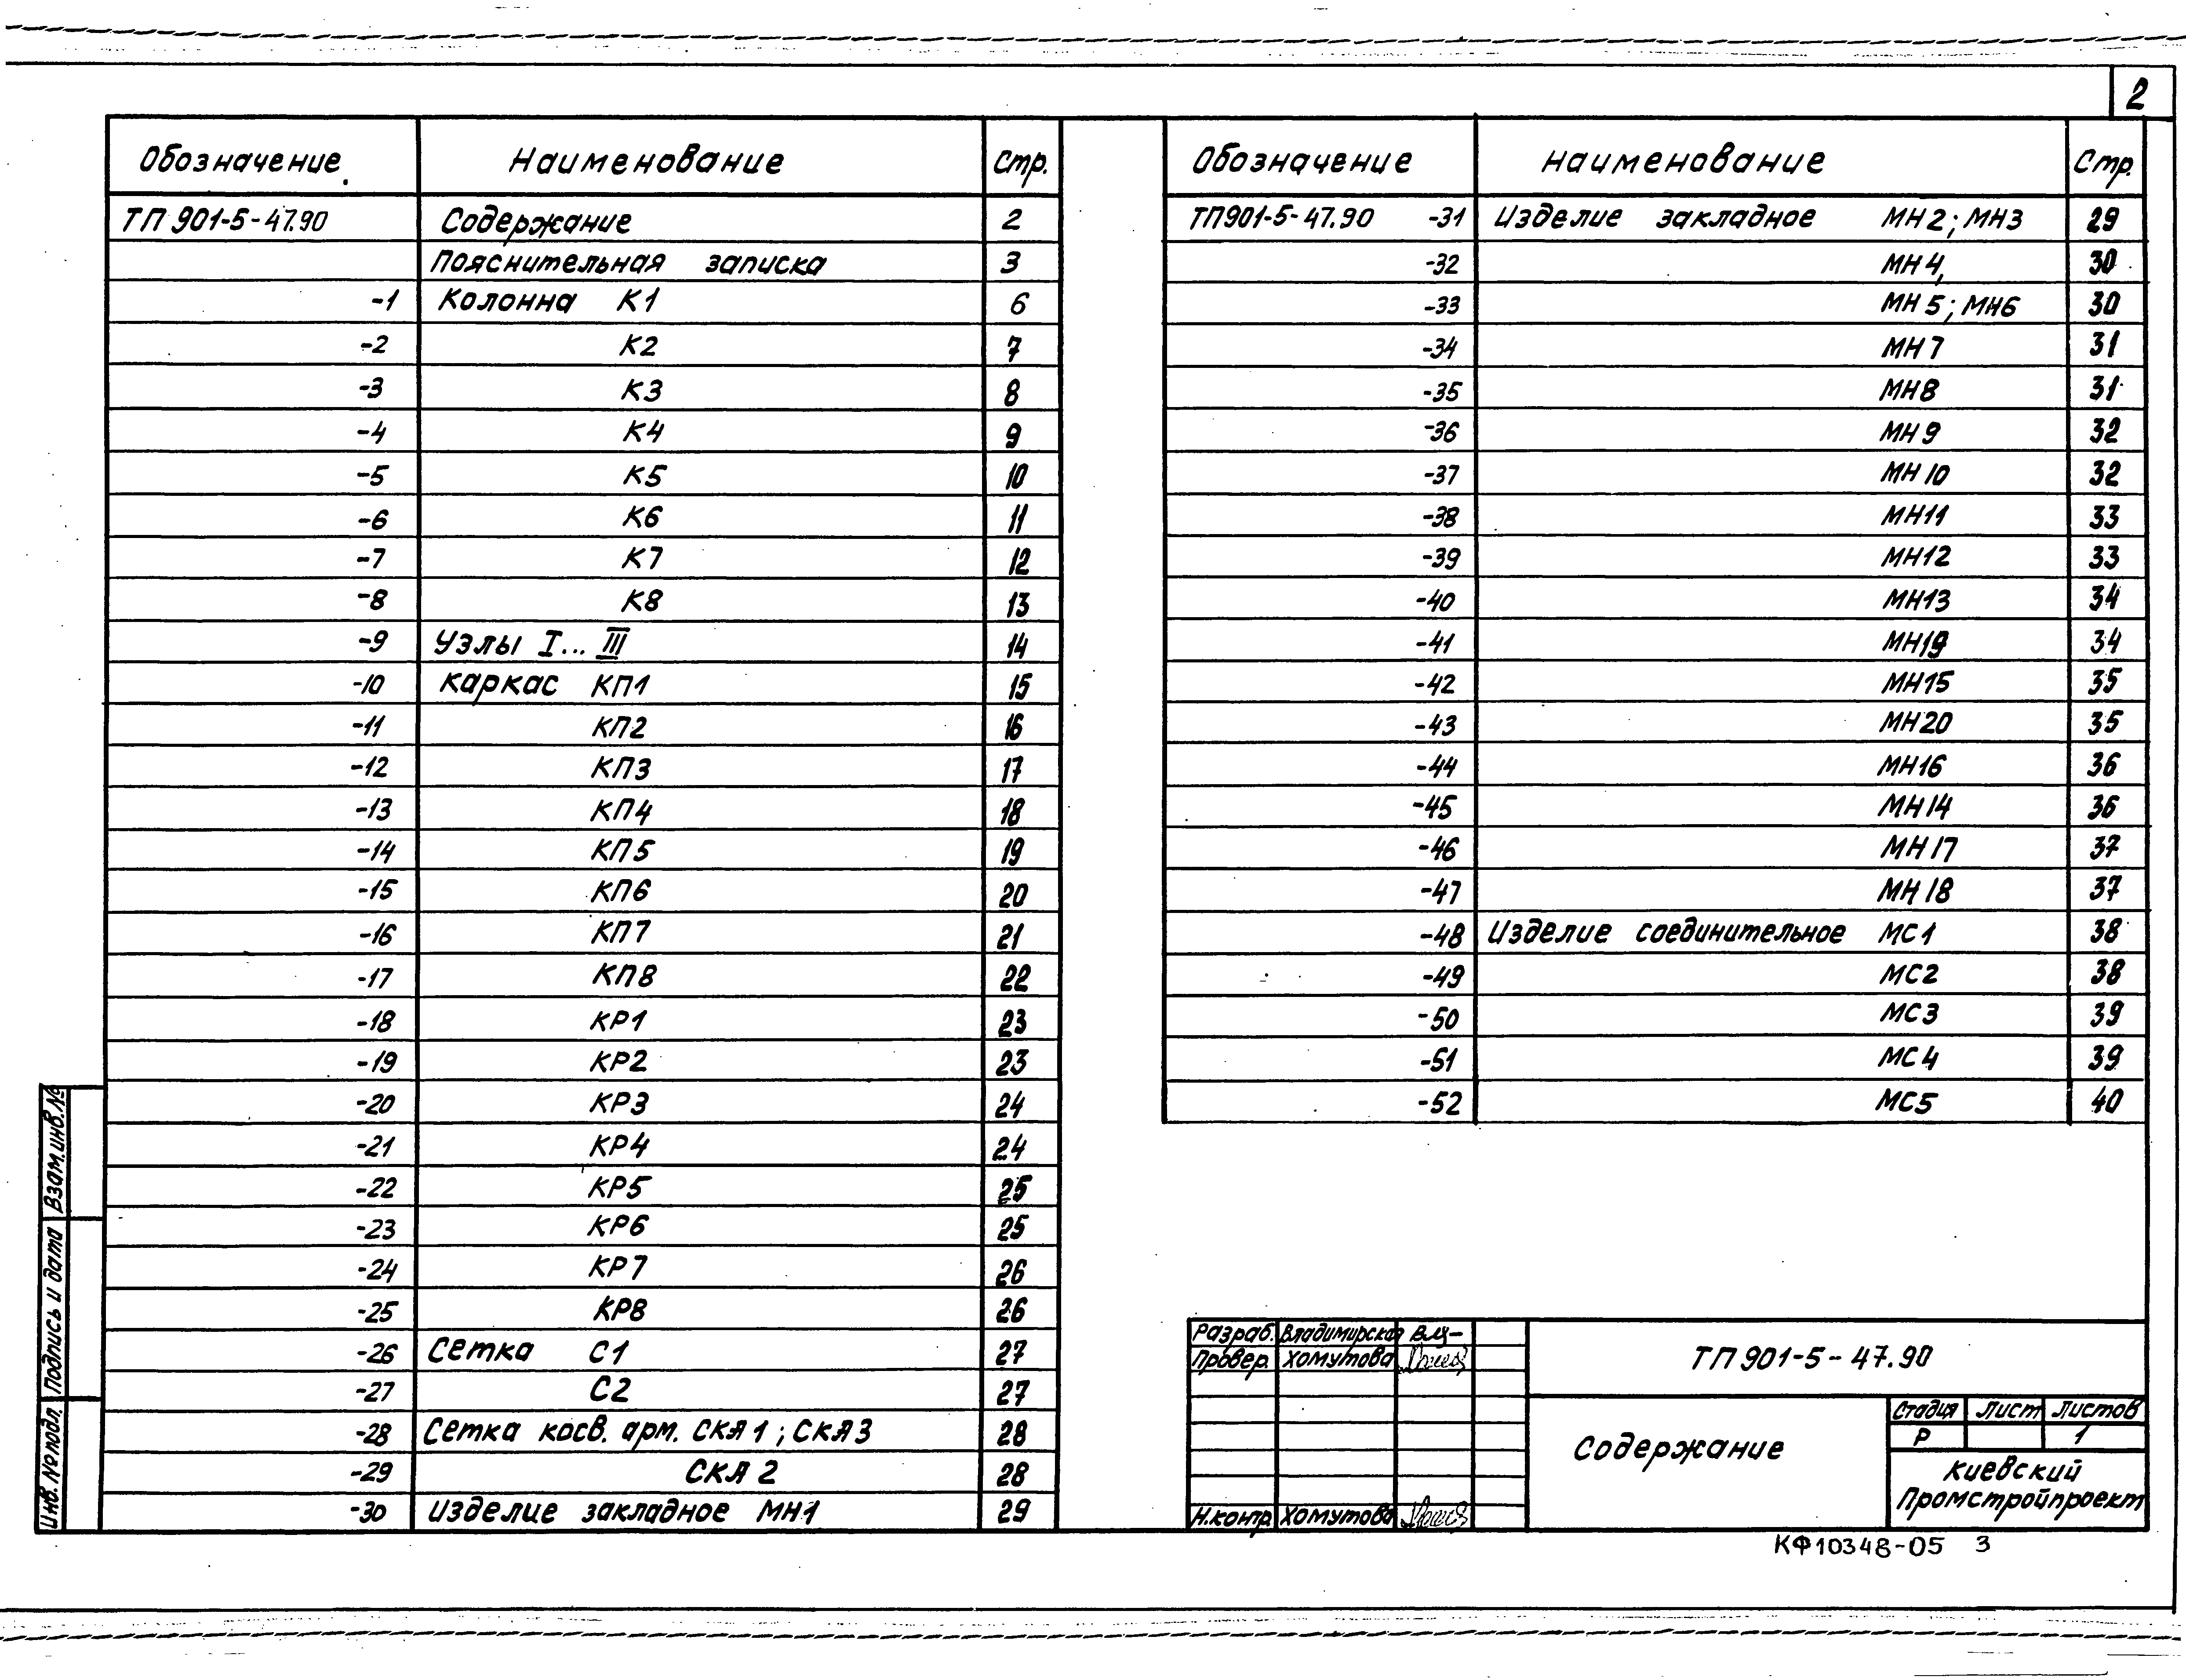 2
Обозначение Наименование Стр.
ТП 901-5-47.90 Содержание 2
Пояснительная записка 3
-1 Колонна К1 6
-2 К2 7
-3 К3 8
-4 К4 9
-5 К5 10
-6 К6 11
-7 К7 12
-8 К8 13
-9 Узлы I...III 14
-10 Каркас КП1 15
-11 КП2 16
-12 КП3 17
-13 КП4 18
-14 КП5 19
-15 КП6 20
-16 КП7 21
-17 КП8 22
-18 КР1 23
-19 КР2 23
-20 КР3 24
-21 КР4 24
-22 КР5 25
-23 КР6 25
-24 КР7 26
-25 КР8 26
-26 Сетка С1 27
-27 С2 27
-28 Сетка косв. арм. СКА1; СКА3 28
-29 СКА 2 28
-30 Изделие закладное МН1 29
Обозначение Наименование Стр.
ТП901-5-47.90 -31 Изделие закладное МН2; МН3 29
-32 МН4, 30
-33 МН5; МН6 30
-34 МН7 31
-35 МН8 31
-36 МН9 32
-37 МН10 32
-38 МН11 33
-39 МН12 33
-40 МН13 34
-41 МН19 34
-42 МН15 35
-43 МН20 35
-44 МН16 36
-45 МН14 36
-46 МН17 37
-47 МН18 37
-48 Изделие соединительное МС1 38
-49 МС2 38
-50 МС3 39
-51 МС4 39
-52 МС5 40
Взам.инв.№
Подпись и дата
Инв.№подл.
Разраб. Владимирская
Провер. Хомутова
Н.контр. Хомутова
ТП 901-5-47.90
Содержание
Стадия Лист Листов
Р 1
Киевский
Промстройпроект
КФ10348-05 3